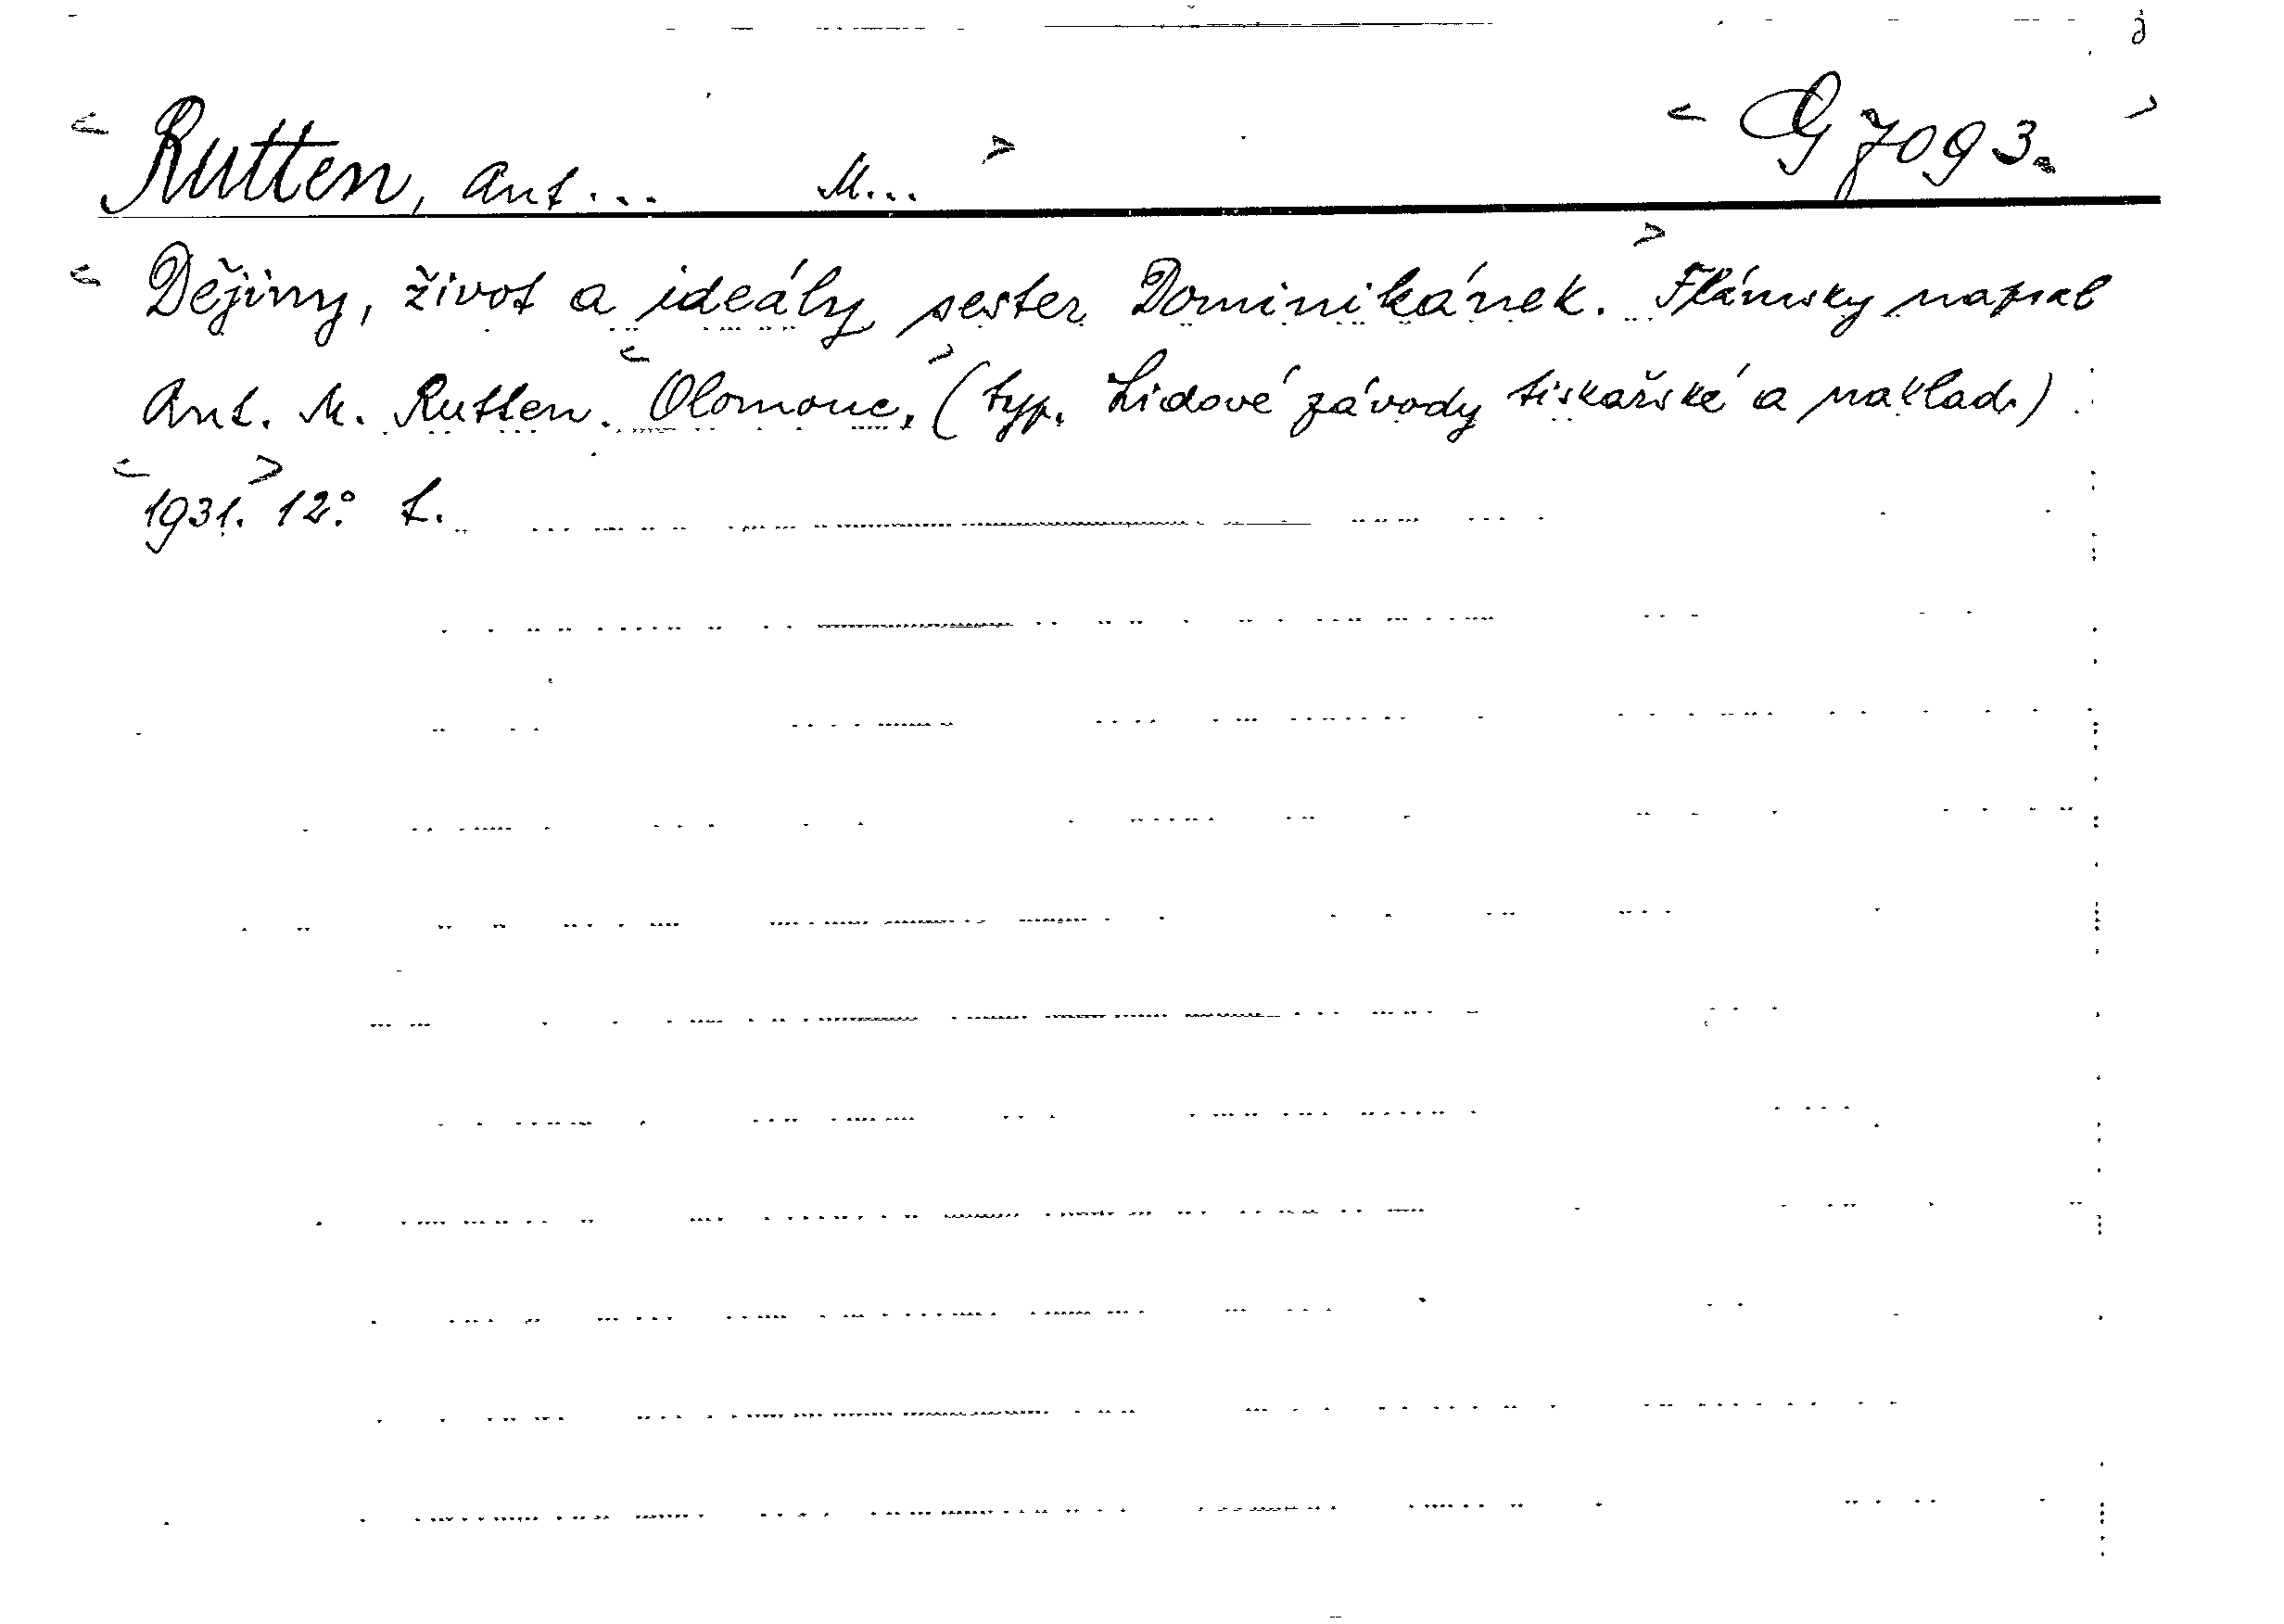 Rutten, Ant... M... G 7093.
Dějiny, život a ideály sester Dominikánek. Flámsky napsal
Ant. M. Rutten. Olomouc, (typ. Lidové závody tiskařské a naklad.)
1931. 12°. t.